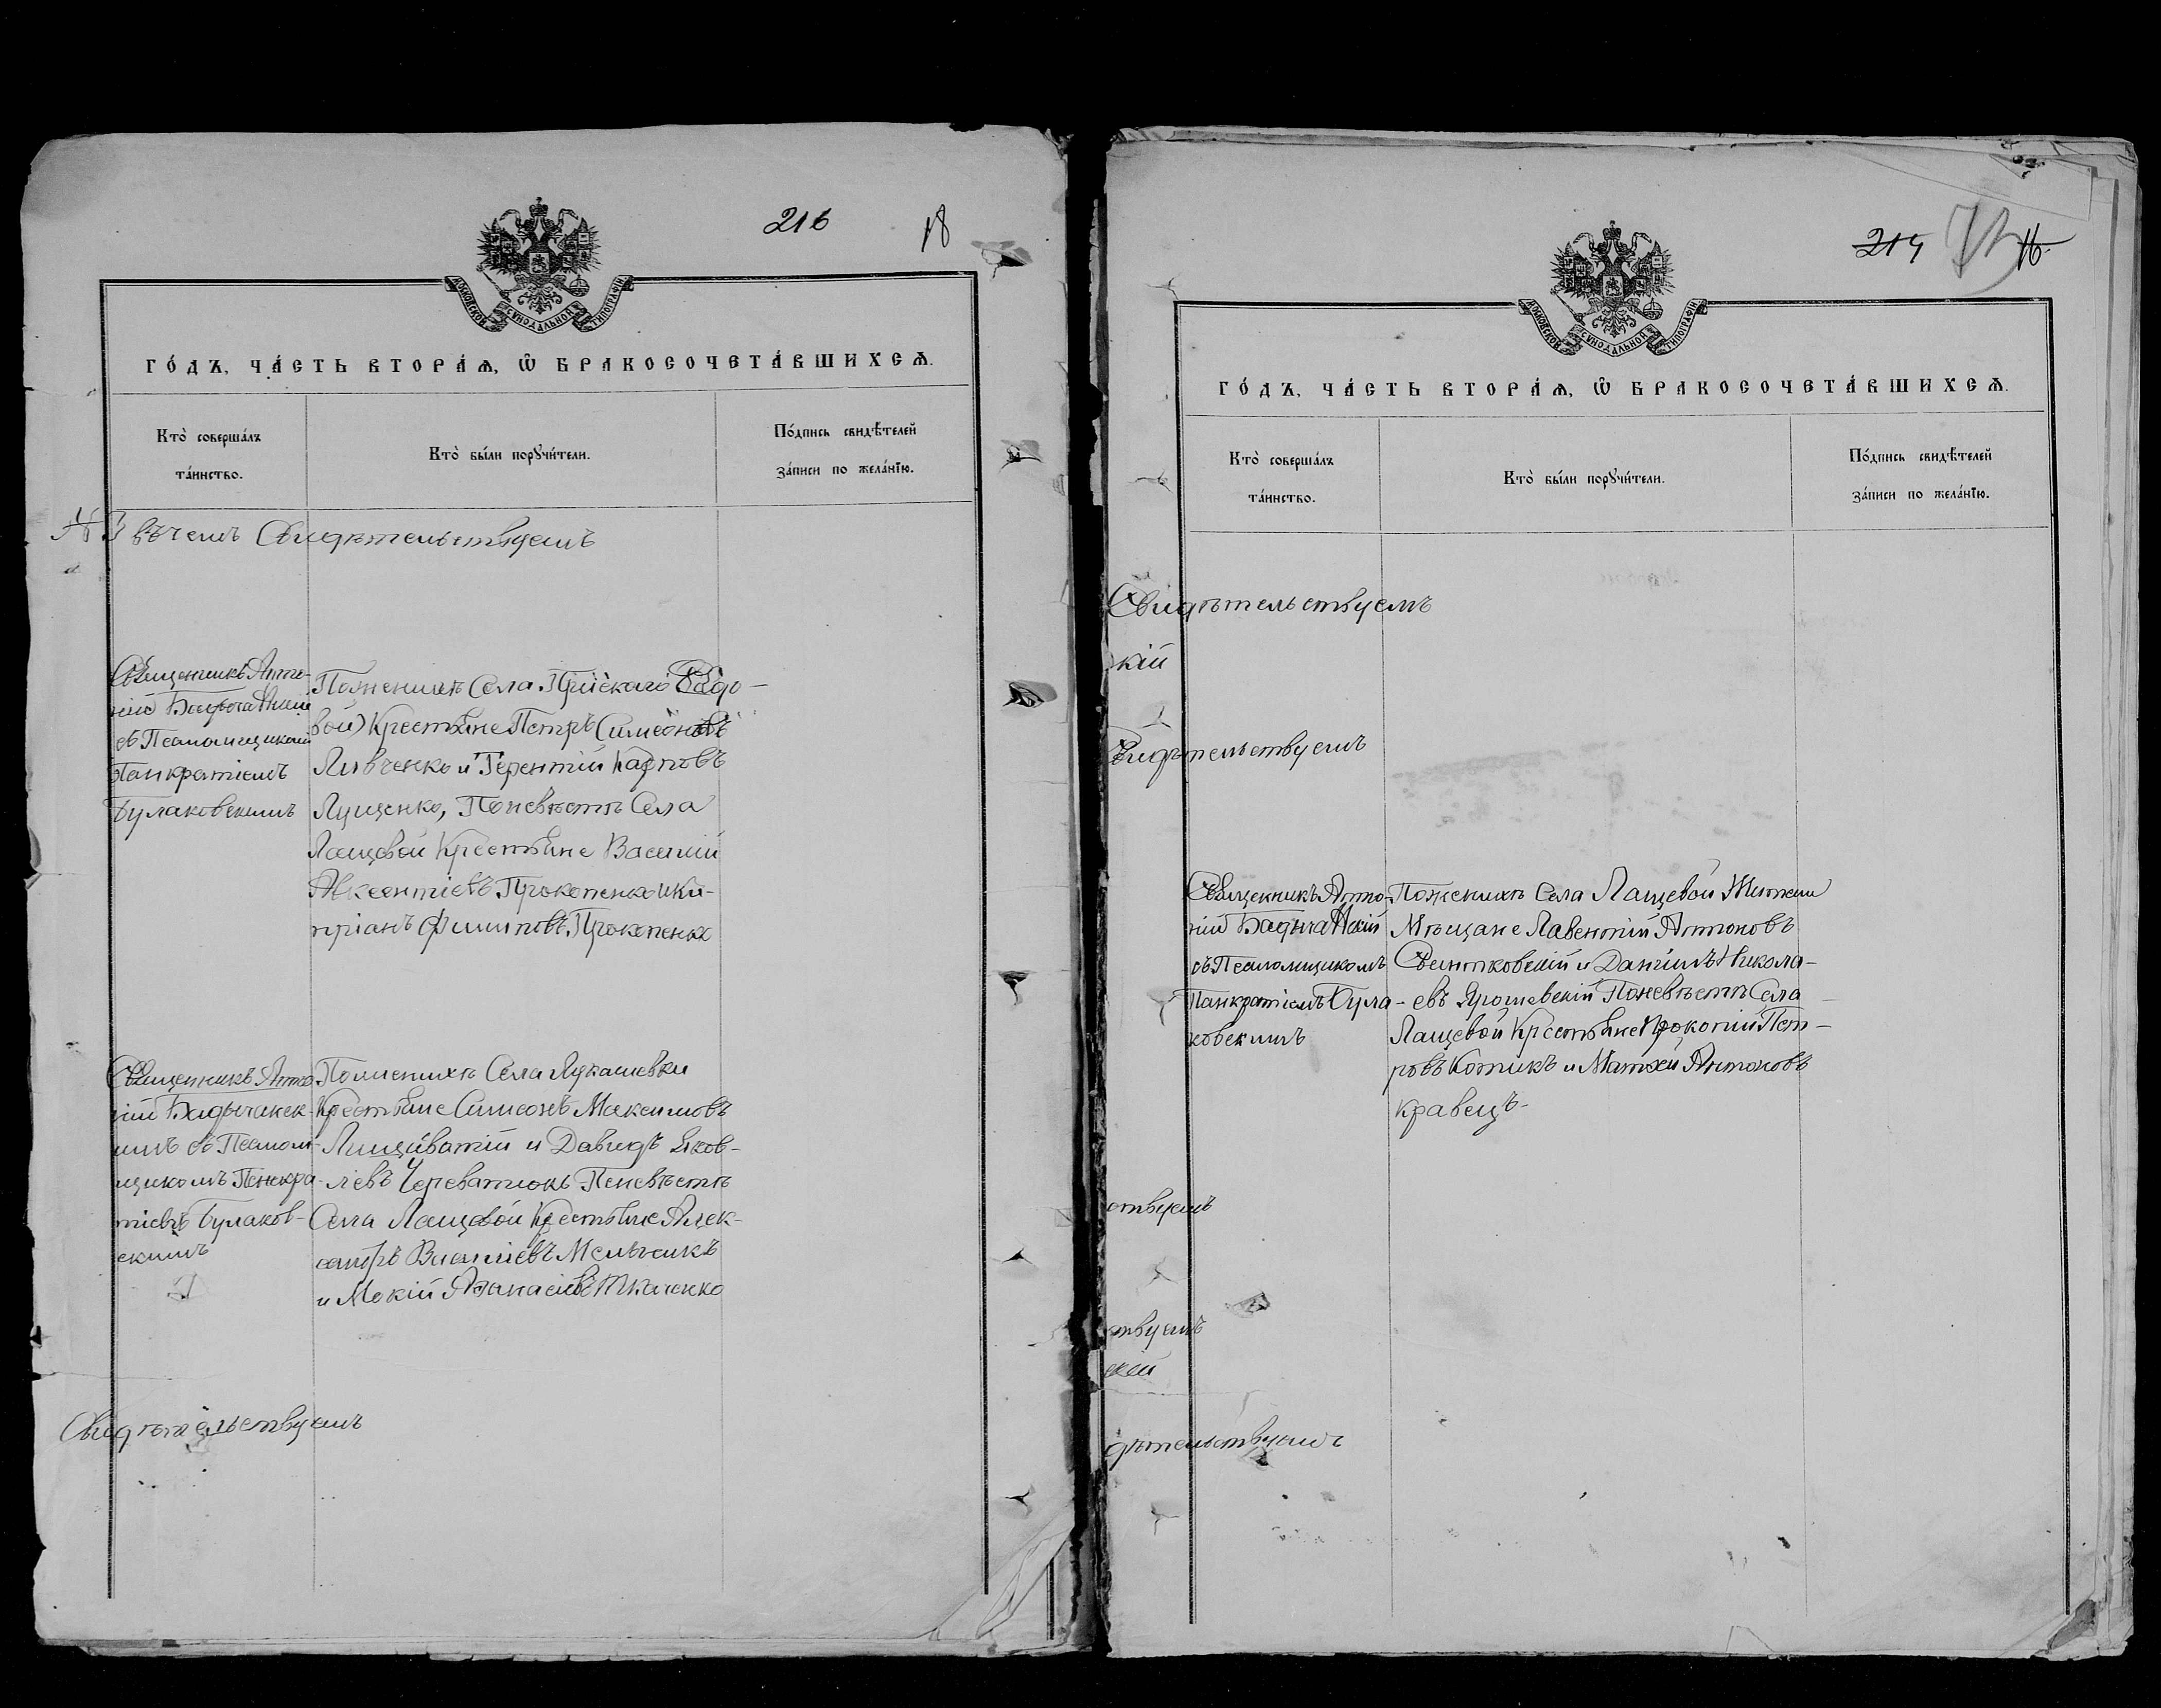 216 18
МОСКОВСКОЙ СѴНОДАЛЬНОЙ ТИПОГРАФІИ
ГО́ДЪ, ЧА́СТЬ ВТОРА́Ѧ, Ѽ БРАКОСОЧЕТА́ВШИХСѦ.
Кто̀ соверша́лъ
та́инство.
Кто̀ бы́ли порꙋчи́тели.
По́дпись свидѣ́телей
за́писи по жела́нїю.
въ чемъ Свидѣтельствуемъ
Священникъ Анто-
ній
съ Псаломщикомъ
Панкратіемъ
Булаковскимъ
По женихѣ Села
Крестьяне Петръ Симеоновъ
Ливченко и Терентій Карповъ
Лущенко, По невѣстѣ Села
Лащевой Крестьяне Василій
Авксентіевъ Прокопенко и Ки-
пріанъ Филиповъ Прокопенко
Священникъ Анто-
ній
съ Псалом-
щикомъ
Булаков-
скимъ
По женихѣ Села Лукашевки
Крестьяне Симеонъ Максимовъ
и Давидъ Яков-
левъ Череватюкъ По невѣстѣ
Села Лащевой Крестьяне Алек-
сандръ Мельникъ
и Мокій Аѳанасіевъ Ткаченко
Свидѣтельствуемъ
214 16
МОСКОВСКОЙ СѴНОДАЛЬНОЙ ТИПОГРАФІИ
ГО́ДЪ, ЧА́СТЬ ВТОРА́Ѧ, Ѽ БРАКОСОЧЕТА́ВШИХСѦ.
Кто̀ соверша́лъ
та́инство.
Кто̀ бы́ли порꙋчи́тели.
По́дпись свидѣ́телей
за́писи по жела́нїю.
Свидѣтельствуемъ
кій
видѣтельствуемъ
Священникъ Анто-
ній
съ Псаломщикомъ
Панкратіемъ Була-
ковскимъ
По женихѣ Села Лащевой Жители
Мѣщане Лавентій Антоновъ
Свентковскій и Даніилъ Никола-
евъ Ярошевскій По невѣстѣ Села
Лащевой Крестьяне Прокопій Пет-
ровъ Котикъ и Матѳей Антоновъ
Кравецъ
ствуемъ
ствуемъ
скій
дѣтельствуемъ